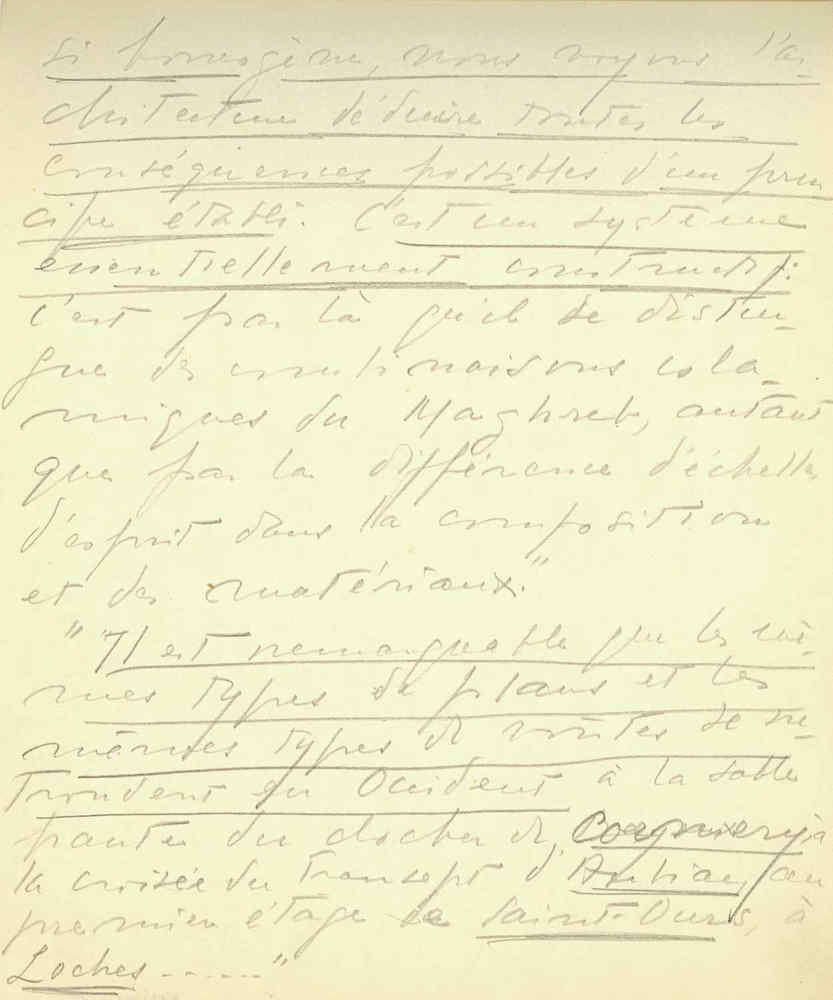 si homogène, nous voyons l'ar-
chitecture déduire toutes les
conséquences possibles d'un prin
cipe établi. C'est un système
essentiellement constructif:
C'est par là qu'il se distin-
gue des combinaisons isla-
miques du Maghreb, autant
que par la différence d'échelle
d'esprit dans la composition
et des matériaux."
"Il est remarquable que les mê-
mes types de plans et les
mêmes types de voûtes se re-
trouvent en Occident à la salle
haute du clocher de Cormery, à
la croisée du transept d'Aubiac, au
premier étage de Saint-Ours, à
Loches ------"